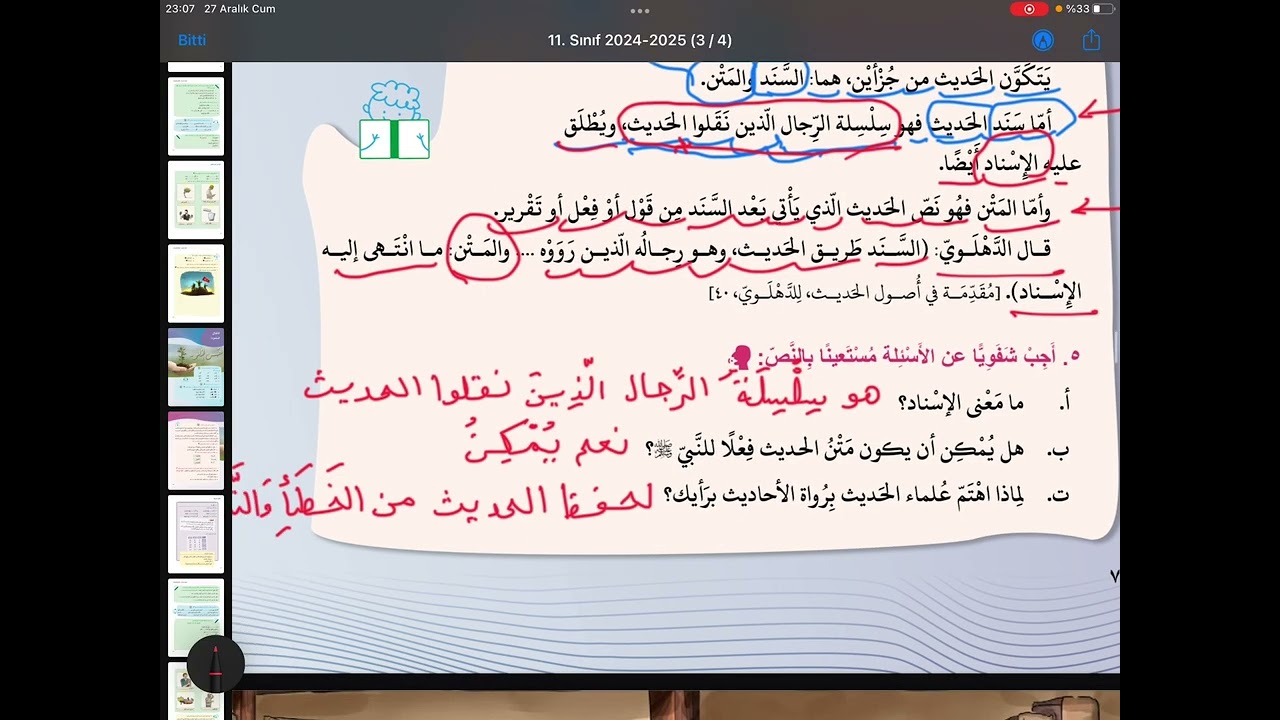 23:07 27 Aralık Cum
%33
Bitti
11. Sınıf 2024-2025 (3 / 4)
يَتَكَوَّن الحَديث من جُزْأَيْن، هما: السَّنَد والمَتْن.
أمّا سَنَد الحَديث فهو سِلْسِلة الرِّجال الَّذين نَقَلوا الحَديث، ويُطْلَق
عليه الإِسْناد أَيْضًا.
وأمّا المَتْن فهُو نَصّ الحَديث الَّذي يَأْتي بَعْد السَّنَد مِن قَوْل أوْ فِعْل أو تَقْرير.
قـال الدَّهْلَـويّ: (السَّـنَد طَريـق الحَديـث، وهـو رِجـالُه الَّذيـن رَوَوْه ... والمَـتْن: مـا انْتَـهى إليـه
الإِسْـناد). [مُقَدِّمَـة في أُصـول الحَديـث، لِلدَّهْلَـويّ، ٤٠]
٥. أَجِبْ شَفَوِيًّا عن الأَسْئِلة مُسْتَعينًا بِالنَّصّ:
أ. ما مَعْنى الإسْناد؟ هو سِلْسِلَةُ الرِّجال الَّذِينَ نقلوا الحديث
ب. هل يُمْكِن أن يكون مَتْنُ الحديث فِعْلًا للنَّبيّ ﷺ؟ نعم يُمْكِنُ
ت. لِماذا اهْتَمّ عُلماء الحَديث بِرُواة الأحاديث بِرَأيك؟ لحفظ الحديث من الخَطَأِ
٧